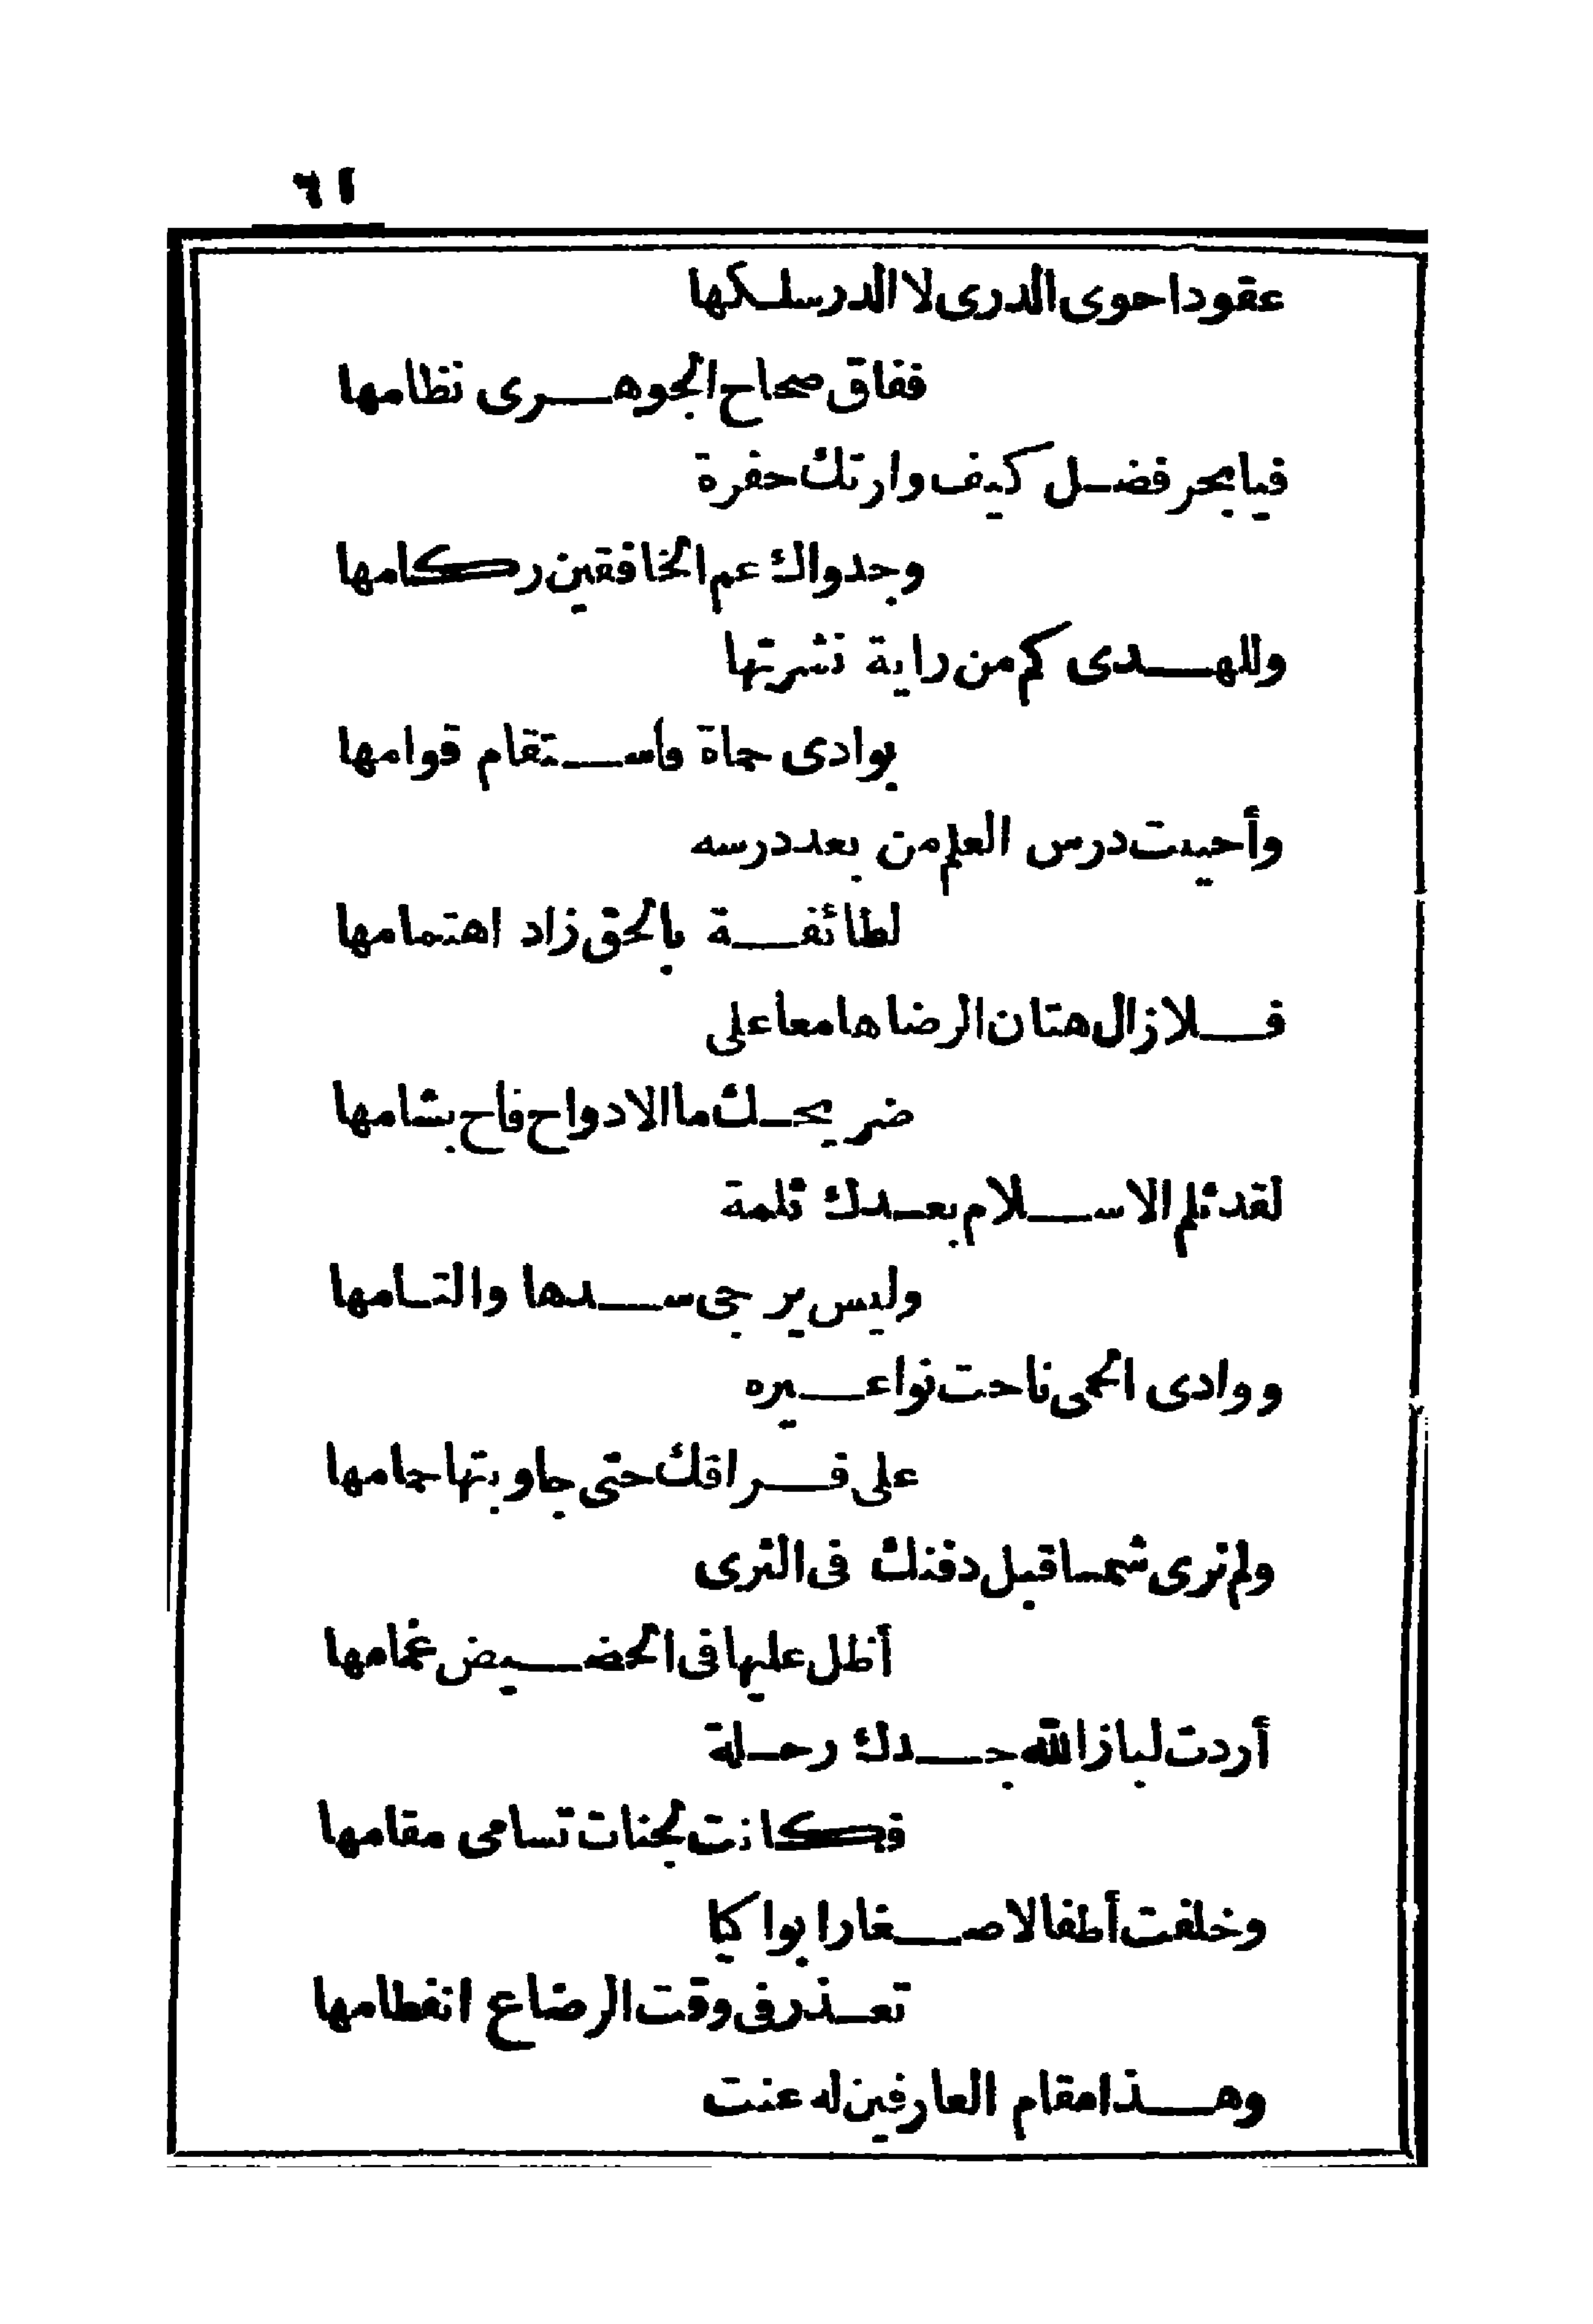 ٦١
عقودا حوى الدرى لا الدر سلكها
ففاق صحاح الجوهرى نظامها
فيا بحر فضل كيف وارتك حفرة
وجدواك عم الخافقين ركامها
وللهدى كم من راية نشرتها
بوادى حماة واستقام قوامها
وأحييت درس العلم من بعد درسه
لطائفة بالحق زاد اهتمامها
فلا زال هتان الرضا هامعا على
ضريحك ما الادواح فاح بشامها
لقد ثلم الاسلام بعدك ثلمة
وليس يرجى سدها والتامها
ووادى الحمى ناحت نواعيره
على فراقك حتى جاوبتها حمامها
ولم نرى شمسا قبل دفنك فى الثرى
أظل عليها فى الحضيض غمامها
أردت لباز الله جدك رحلة
فكانت لجنات تسامى مقامها
وخلفت أطفالا صغارا بواكيا
تعذر فى وقت الرضاع انفطامها
وهذا مقام العارفين له عنت